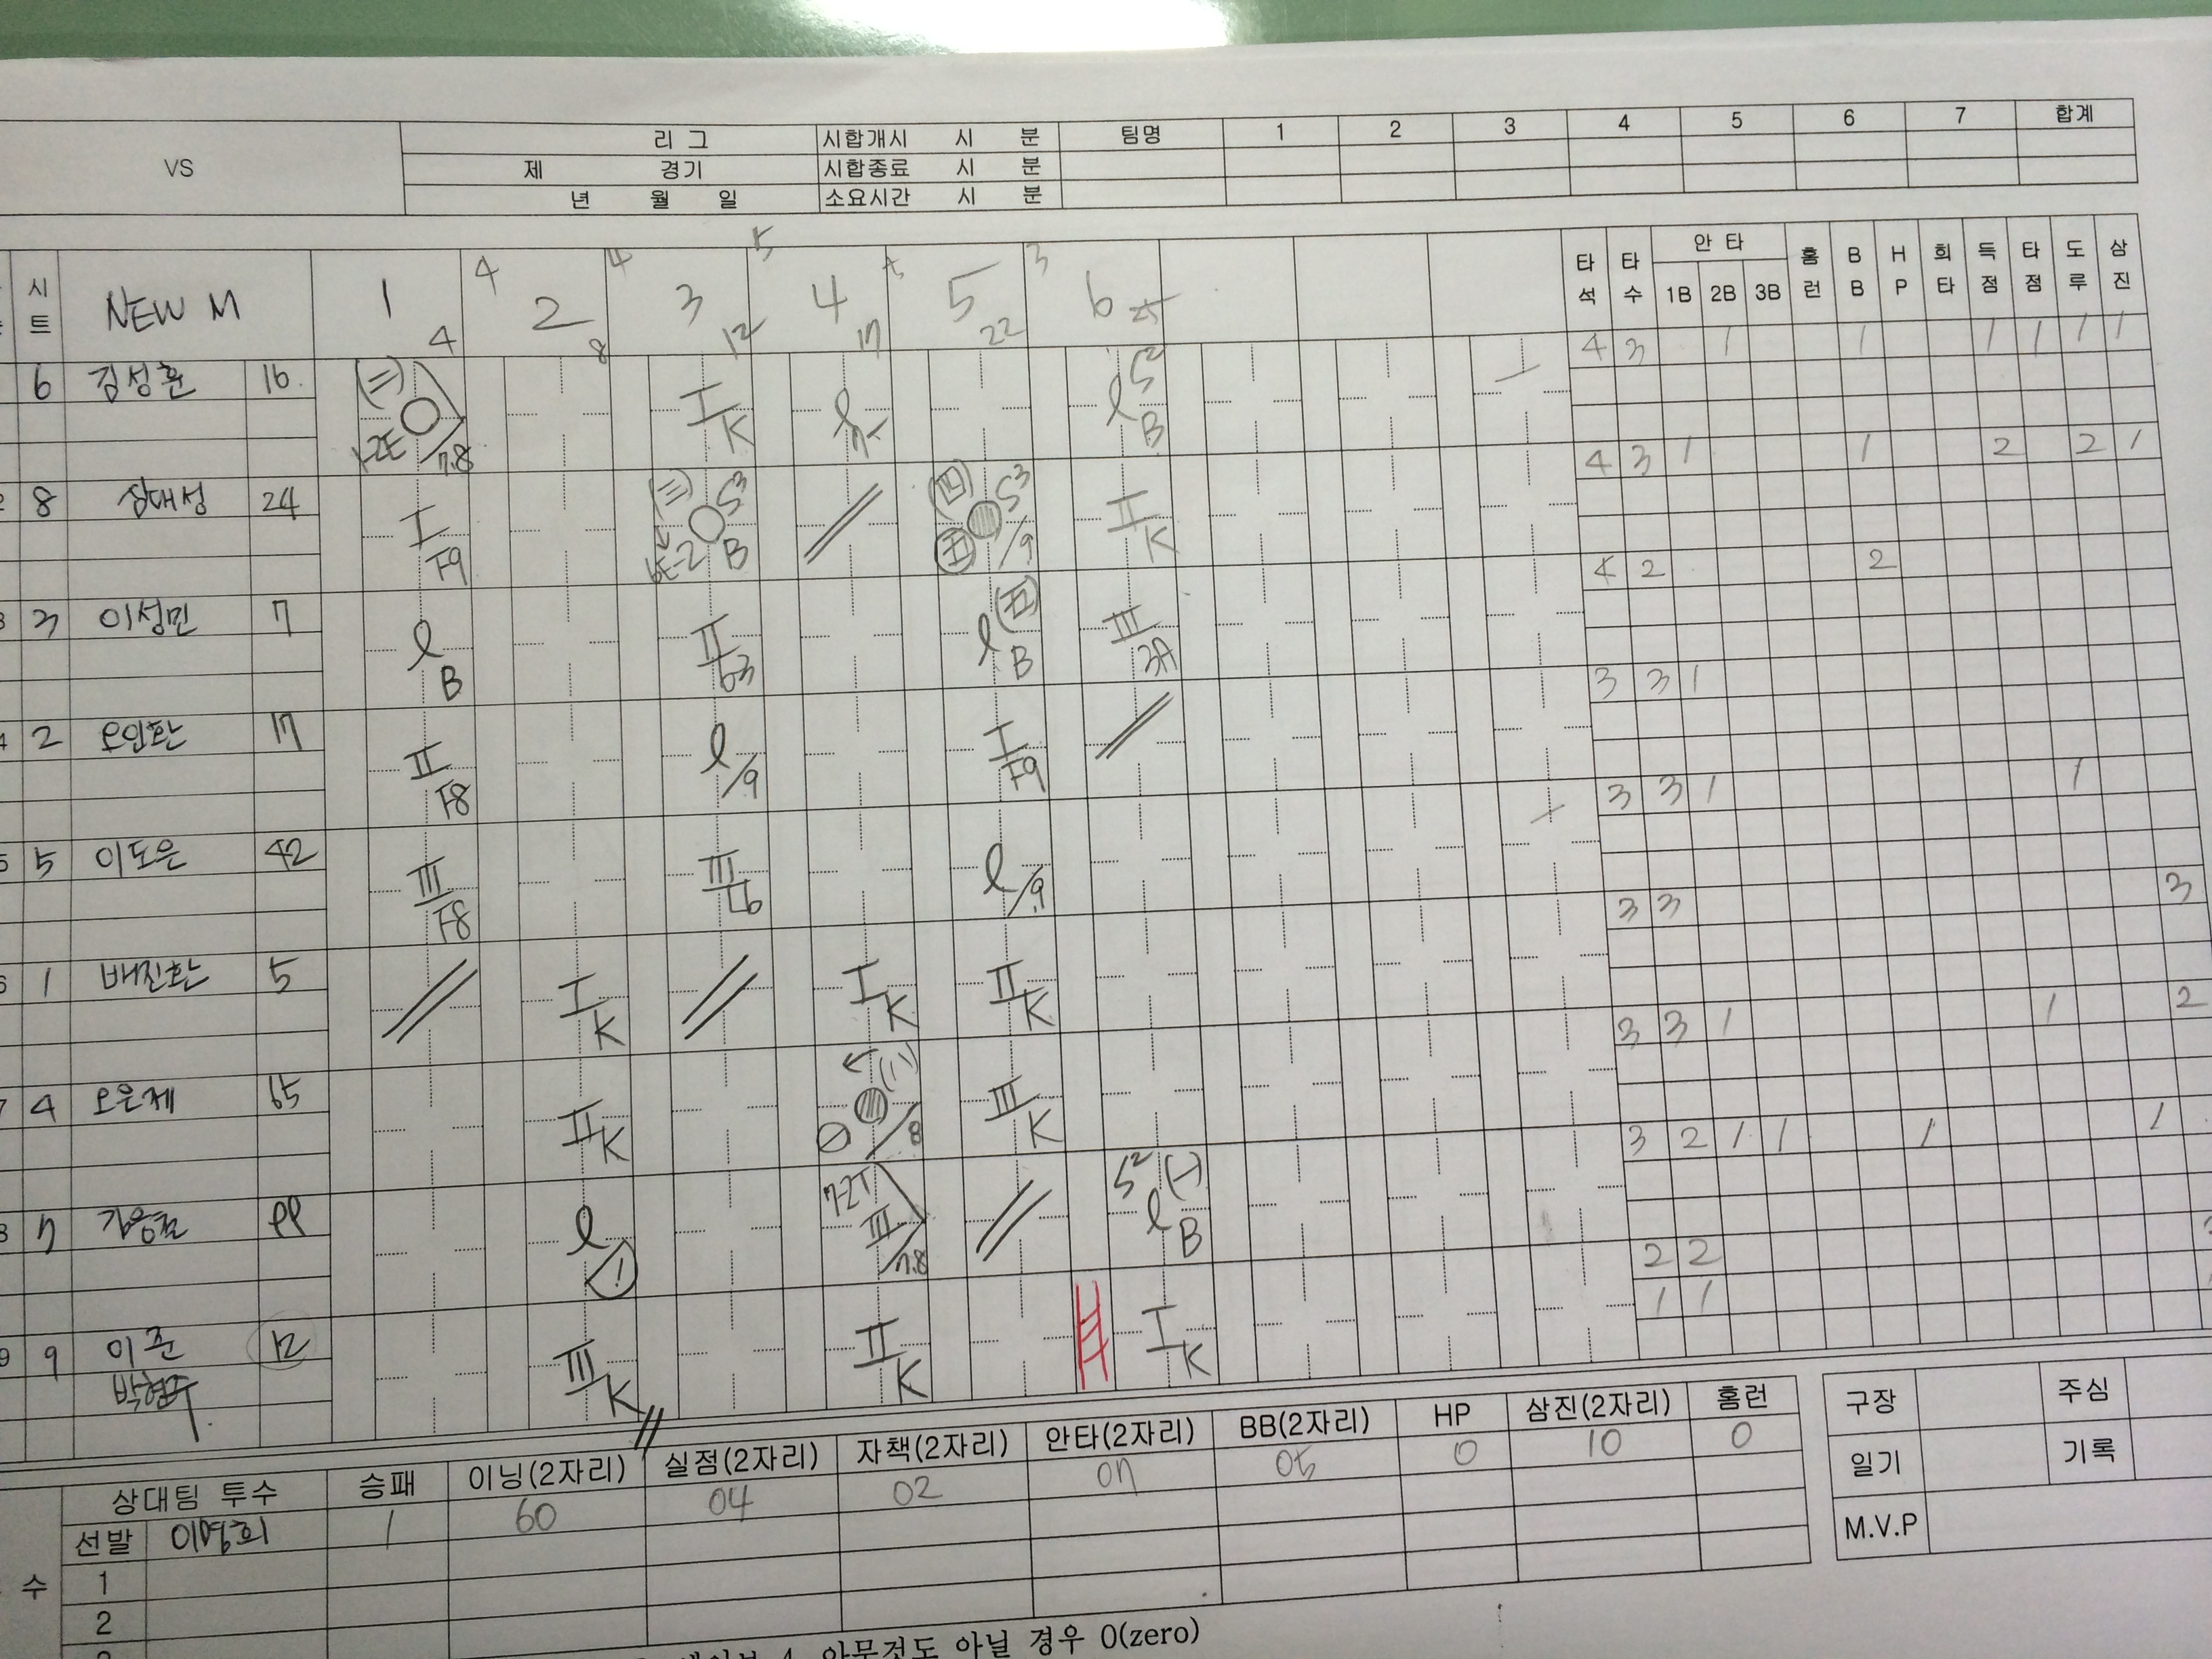 리 그 시합개시 시 분 팀명 1 2 3 4 5 6 7 합계
VS 제 경기 시합종료 시 분
년 월 일 소요시간 시 분
4 4 5 3
시트 NEW M 1 2 3 4 5 6 타석 타수 안타 1B 2B 3B 홈런 BB HP 희타 득점 타점 도루 삼진
4 8 12 17 22 25
6 김성훈 16 K B 4 3 1 1 1 1 1 1
8 24 I F9 S3 B S3 /9 II K 4 3 1 1 2 2 1
3 이성민 7 B II 63 B III 3A 4 2 2
2 오인환 17 II F8 /9 I F9 3 3 1
5 이도은 42 III F8 III L6 /9 3 3 1 1
1 배진환 5 I K I K II K 3 3 3
4 오은제 65 II K /8 III K 3 3 1 1 2
7 99 7-2T III /7.8 S2 B 3 2 1 1 1 1
9 이준 12 III K II K I K 2 2
박형수 1 1
상대팀 투수 승패 이닝(2자리) 실점(2자리) 자책(2자리) 안타(2자리) BB(2자리) HP 삼진(2자리) 홈런
선발 이명희 1 60 04 02 07 05 0 10 0
수 1
2
구장 주심
일기 기록
M.V.P
4 아무것도 아닐 경우 0(zero)